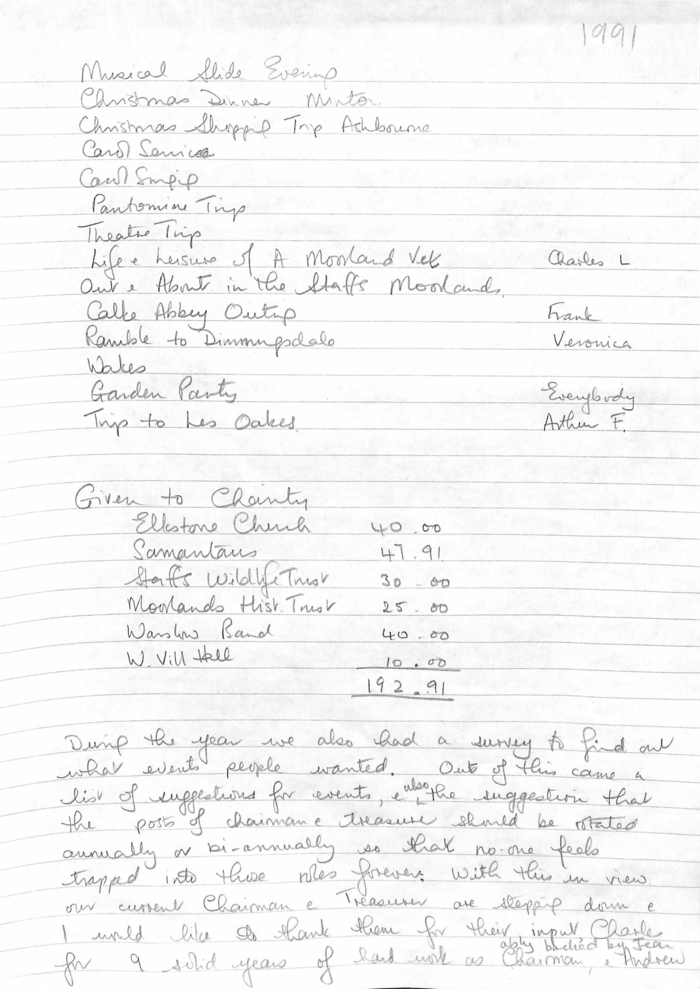 1991
Musical Slide Evening
Christmas Dinner Mintor
Christmas Shopping Trip Ashbourne
Carol Service
Carol Singing
Pantomine Trip
Theatre Trip
Life & Leisure of A Moorland Vet Charles L
Out & About in the Staffs Moorlands.
Calke Abbey Outing Frank
Ramble to Dimmingsdale Veronica
Wakes
Garden Party Everybody
Trip to Les Oakes. Arthur F.
Given to Charity
Elkstone Church 40.00
Samaritans 47.91
Staffs Wildlife Trust 30.00
Moorlands Hist. Trust 25.00
Warslow Band 40.00
W. Vill Hall 10.00
192.91
During the year we also had a survey to find out
what events people wanted. Out of this came a
list of suggestions for events, & also the suggestion that
the posts of chairman & treasurer should be rotated
annually or bi-annually so that no-one feels
trapped into these roles forever. With this in view
our current Chairman & Treasurer are stepping down &
I would like to thank them for their input Charles
for 9 solid years of hard work as Chairman, ably backed by Jean & Andrew